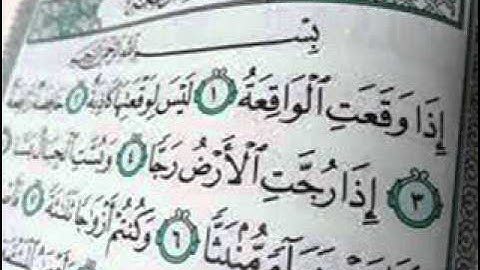 بِسْمِ ٱللَّهِ ٱلرَّحْمَٰنِ ٱلرَّحِيمِ
إِذَا وَقَعَتِ ٱلْوَاقِعَةُ ١ لَيْسَ لِوَقْعَتِهَا كَاذِبَةٌ ٢ خَافِضَةٌ
٣ إِذَا رُجَّتِ ٱلْأَرْضُ رَجًّا ٤ وَبُسَّتِ ٱلْجِبَالُ
مُّنۢبَثًّا ٦ وَكُنتُمْ أَزْوَٰجًا ثَلَٰثَةً ٧